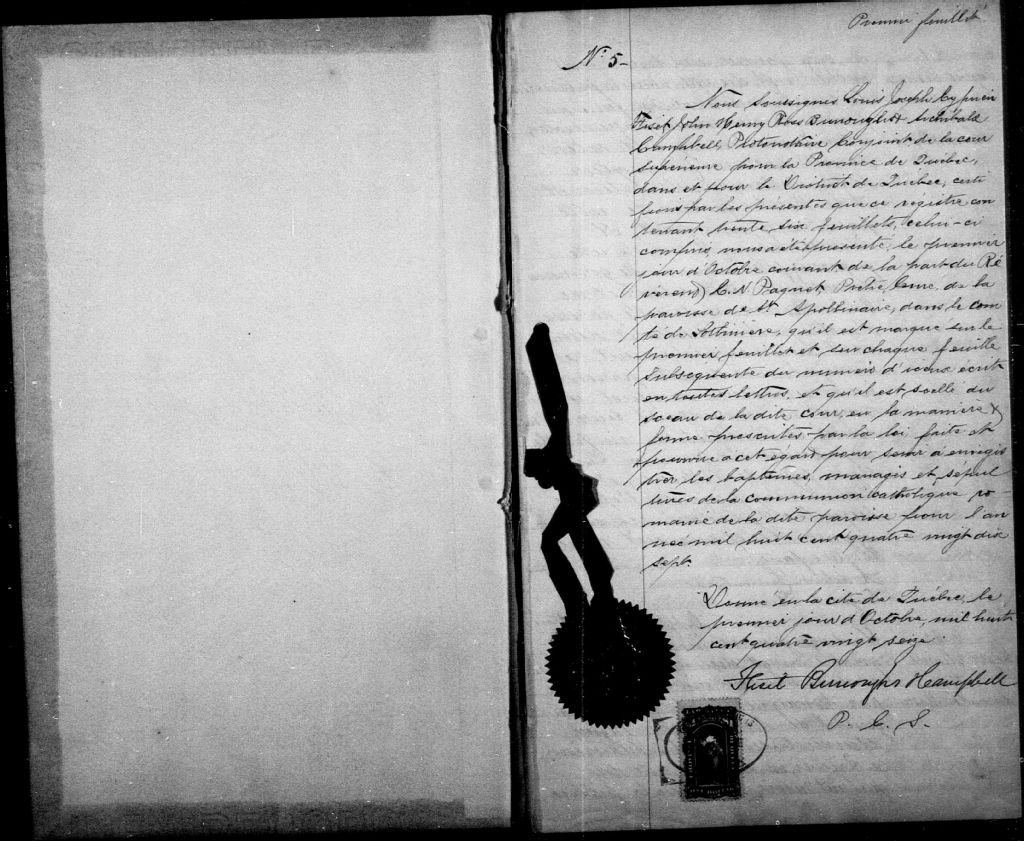 Premier feuillet
N° 5-
Nous soussignés Louis Joseph Cyprien
Fiset, John Henry Ross Burroughs & Archibald
Campbell, Protonotaire Conjoint de la cour
supérieure pour la Province de Québec,
dans et pour le District de Québec, certi
fions par les présentes que ce registre con
tenant trente six feuillets, celui-ci
compris, nous a été présenté, le premier
jour d'Octobre courant de la part du Ré
vérend C. N. Paquet, Prêtre, Curé de la
paroisse de St Apollinaire, dans le com
té de Lotbinière, qu'il est marqué sur le
premier feuillet et sur chaque feuille
subséquente du numéro d'iceux écrit
en toutes lettres, et qu'il est scellé du
sceau de la dite cour, en la manière &
forme prescrites par la loi faite et
pourvue à cet égard pour servir à enregis
trer les baptêmes, mariages et sépul
tures de la communion catholique ro
maine de la dite paroisse pour l'an
née mil huit cent quatre vingt dix
sept.
Donné en la cité de Québec, le
premier jour d'Octobre, mil huit
cent quatre vingt seize.
Fiset Burroughs & Campbell
P. C. S.